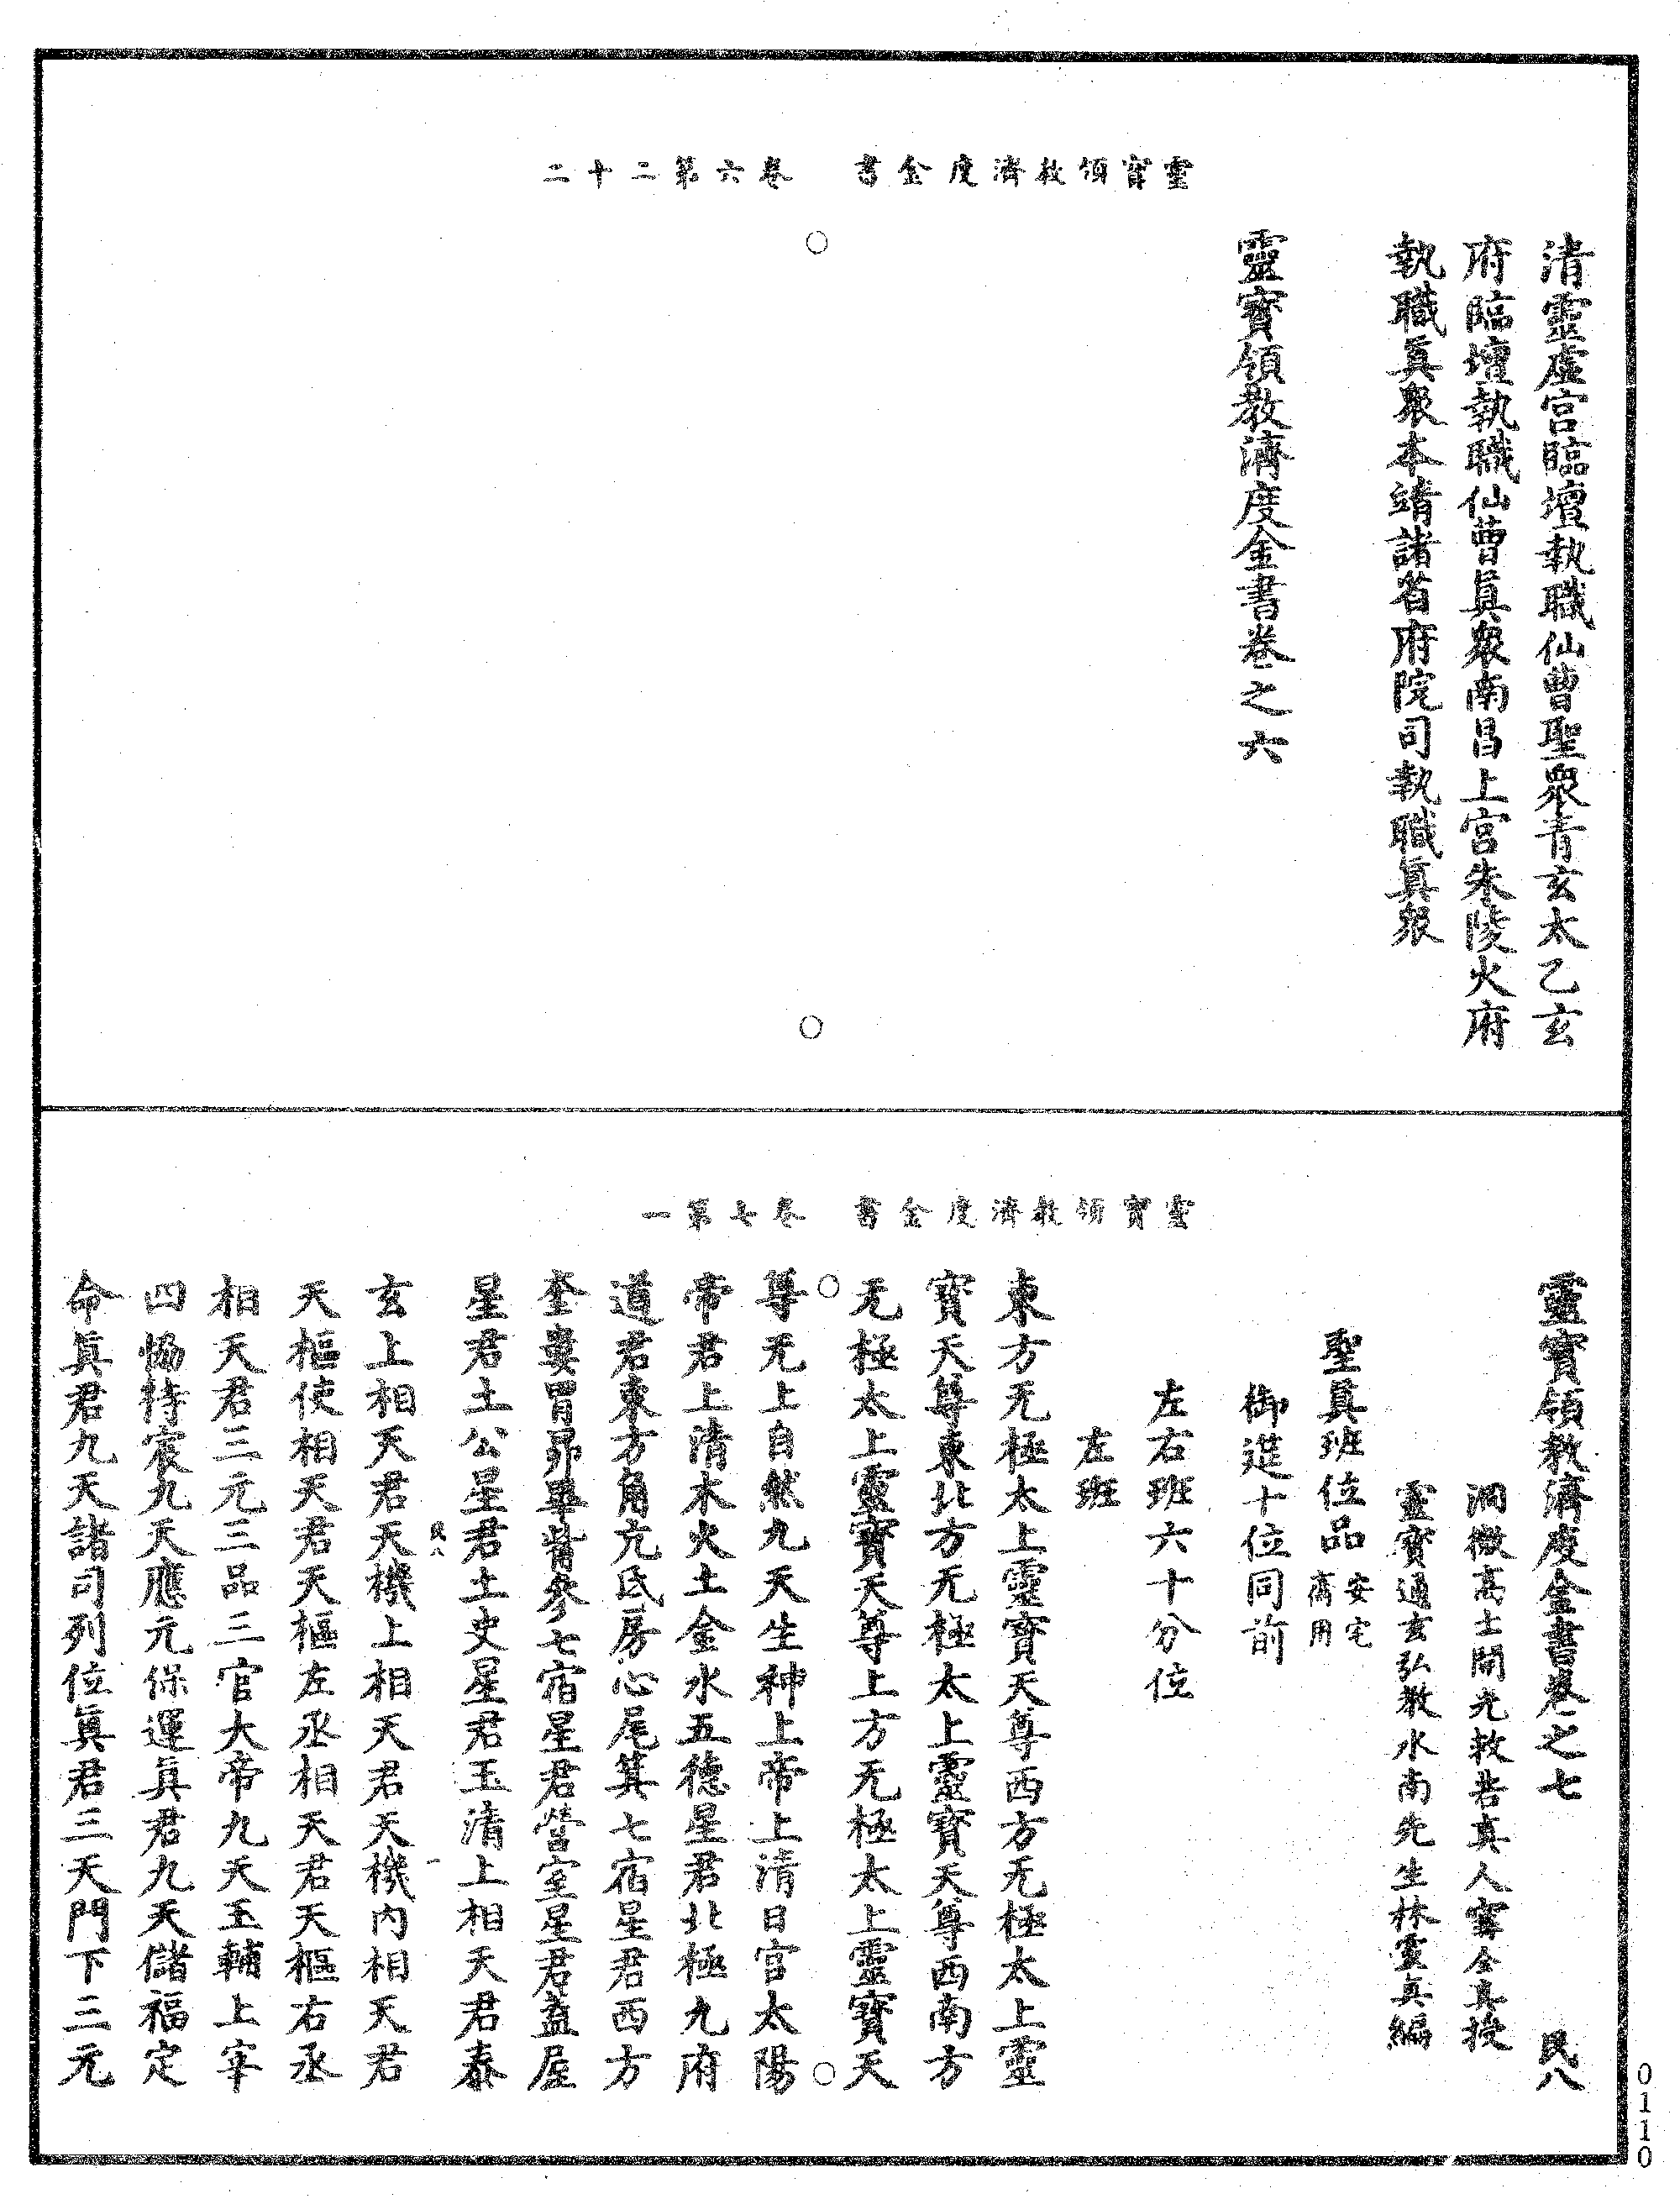 靈寶領教濟度金書　卷六第二十二
清靈虛宮臨壇執職仙曹聖衆青玄太乙玄
府臨壇執職仙曹眞衆南昌上宮朱陵火府
執職眞衆本靖諸省府院司執職眞衆
靈寶領教濟度金書卷之六
靈寶領教濟度金書　卷七第一
靈寶領教濟度金書卷之七　民八
洞微高士開光救苦真人甯全真授
靈寶通玄弘教水南先生林靈真編
聖眞班位品安宅齋用
御筵十位同前
左右班六十分位
左班
東方无極太上靈寶天尊西方无極太上靈
寶天尊東北方无極太上靈寶天尊西南方
无極太上靈寶天尊上方无極太上靈寶天
尊无上自然九天生神上帝上清日宮太陽
帝君上清木火土金水五德星君北極九府
道君東方角亢氐房心尾箕七宿星君西方
奎婁胃昴畢觜參七宿星君營室星君蓋屋
星君土公星君土吏星君玉清上相天君泰
民八　一
玄上相天君天機上相天君天機內相天君
天樞使相天君天樞左丞相天君天樞右丞
相天君三元三品三官大帝九天玉輔上宰
四惕持宸九天應元保運眞君九天儲福定
命眞君九天諸司列位眞君三天門下三元
0110